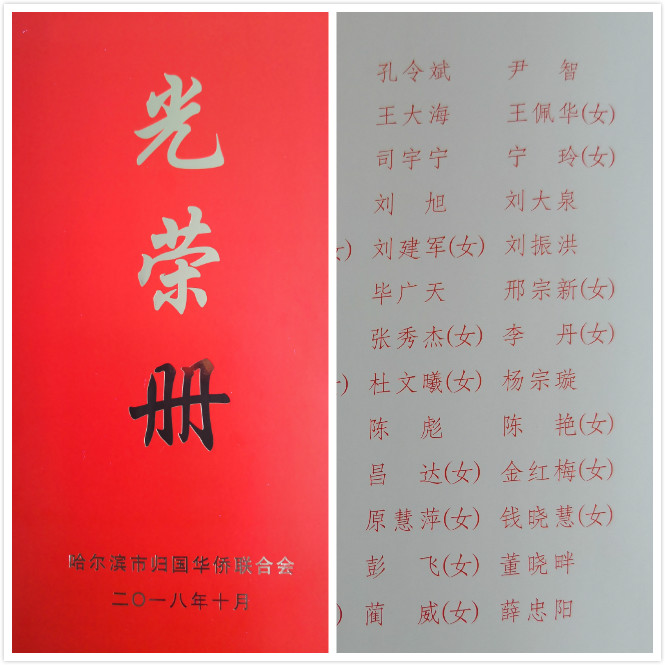 光
荣
册
哈尔滨市归国华侨联合会
二〇一八年十月
孔令斌 尹 智
王大海 王佩华(女)
司宇宁 宁 玲(女)
刘 旭 刘大泉
) 刘建军(女) 刘振洪
毕广天 邢宗新(女)
张秀杰(女) 李 丹(女)
) 杜文曦(女) 杨宗璇
陈 彪 陈 艳(女)
昌 达(女) 金红梅(女)
原慧萍(女) 钱晓慧(女)
彭 飞(女) 董晓畔
) 蔺 威(女) 薛忠阳